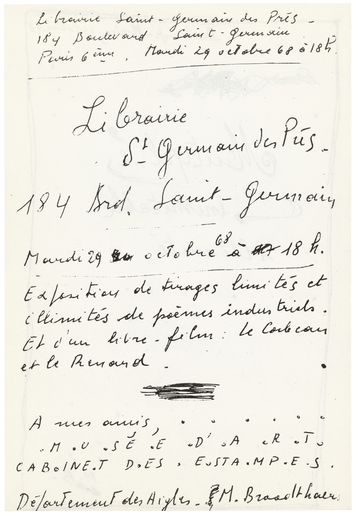 Librairie Saint-Germain des Prés -
184 Boulevard Saint-Germain
Paris 6ème. Mardi 29 octobre 68 à 18h.
Librairie
St Germain des Prés -
184 Brd. Saint-Germain
Mardi 29 octobre 68 à 18 h.
Exposition de tirages limités et
illimités de poèmes industriels.
Et d'un livre-film : le Corbeau
et le Renard.
A mes amis, . . . . . .
. M . U . S É . E D' . A . R . T .
C A B . I N E . T D . E S . E . S T A . M P . E . S .
Département des Aigles. M. Broodthaers